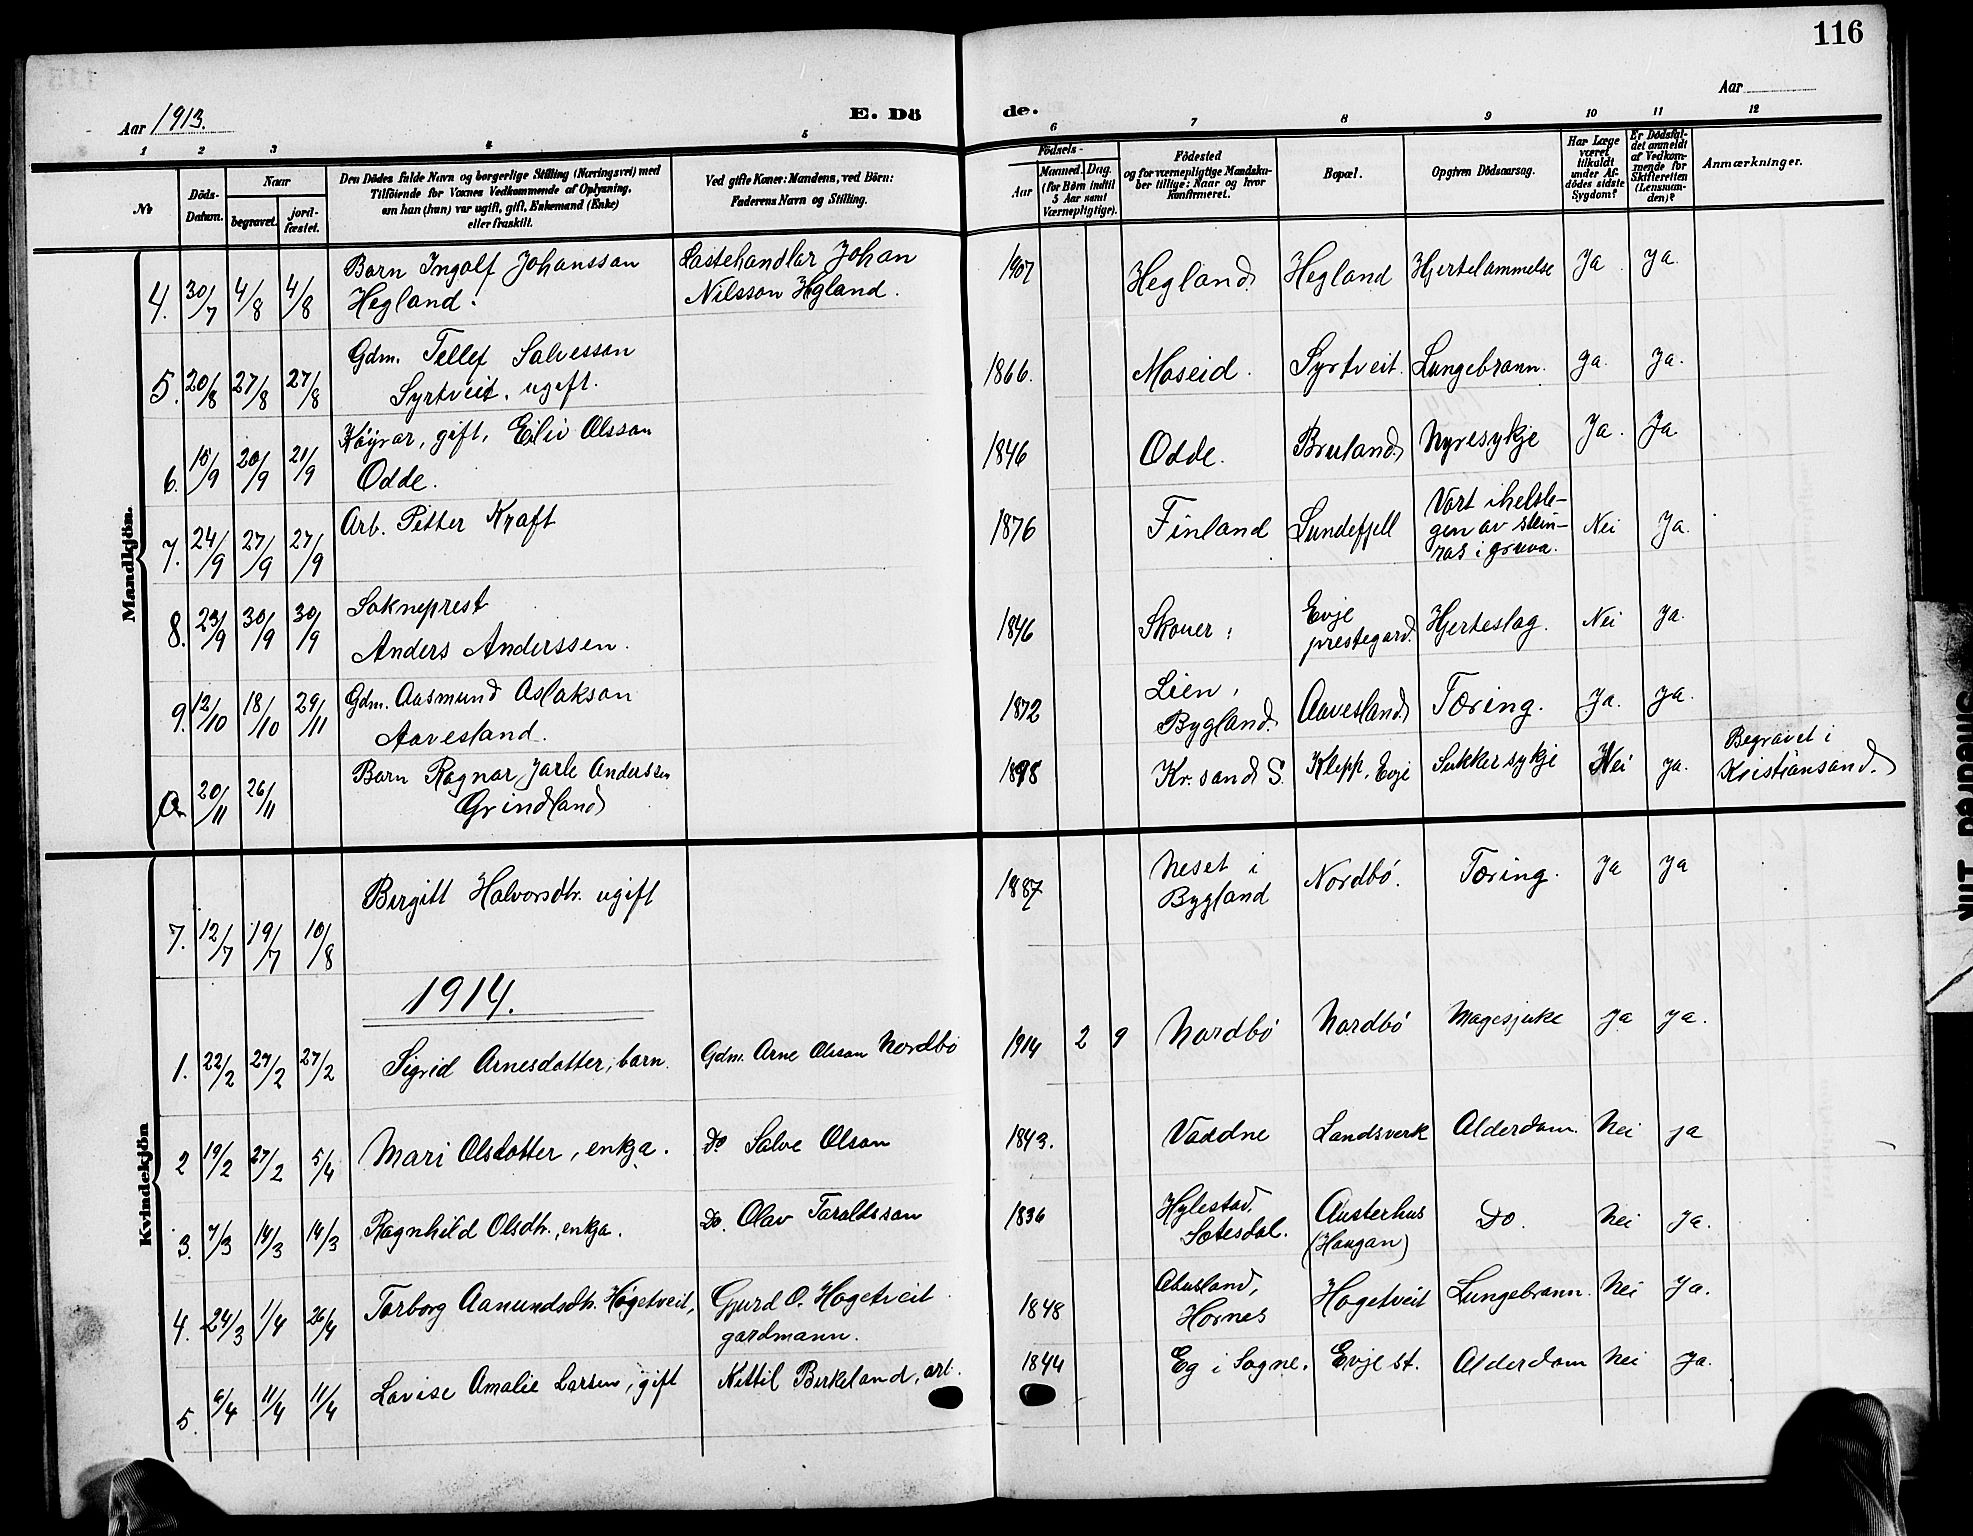 116
Aar 1913.
E. Dö
de.
Aar
1 2 3 4 5 6 7 8 9 10 11 12
№
Döds-
Datum.
Naar
begravet.
jord-
fæstet.
Den Dödes fulde Navn og borgerlige Stilling (Næringsvei) med
Tilföiende for Voxnes Vedkommende af Oplysning,
om han (hun) var ugift, gift, Enkemand (Enke)
eller fraskilt.
Ved gifte Koner: Mandens, ved Börn:
Faderens Navn og Stilling.
Födsels-
Aar
Maaned. Dag.
(for Børn indtil
5 Aar samt
Værnepligtige).
Födested
og for værnepligtige Mandsku-
ber tillige: Naar og hvor
konfirmeret.
Bopæl.
Opgiven Dödsaarsag.
Har Læge
været
tilkaldt
under Af-
dödes sidste
Sygdom?
Er Dödsfal-
det anmeldt
af Vedkom-
mende for
Skifteretten
(Lensman-
den)?
Anmærkninger.
Mandkjön.
4. 30/7 4/8 4/8 Barn Ingolf Johansson
Hegland.
Lastehandlar Johan
Nilsson Hgland.
1907 Hegland Hegland Hjertelammelse Ja Ja.
5. 20/8 27/8 27/8 Gdm. Tellef Salvesson
Syrtveit. ugift.
1866. Moseid. Syrtveit. Lungebrann. Ja. Ja.
6. 15/9 20/9 21/9 Køyrar, gift, Eiliv Olsson
Odde.
1846 Odde. Bruland Nyresykje Ja. Ja
7. 24/9 27/9 27/9 Arb. Petter Kraft
1876 Finland Lundefjell
Vart ihelsle-
gen av stein-
ras i gruva.
Nei Ja.
8. 23/9 30/9 30/9 Sokneprest
Anders Anderssen.
1846 Skouer Evje
prestegard. Hjerteslag. Nei Ja.
9. 12/10 18/10 29/11 Gdm. Aasmund Aslakson
Aavesland.
1872 Lien,
Bygland. Aavesland Tæring. Ja. Ja.
20/11 26/11 Barn Ragnar Jarle Anderssen
Grindland
1898 Kr.sand S. Klepp, Evje Sukkersykje Nei Ja.
Begravet i
Kristiansand.
Kvindekjön
7. 12/7 19/7 10/8 Birgitt Halvorsdtr. ugift
1887 Neset i
Bygland Nordbø. Tæring. Ja Ja
1914.
1. 22/2 27/2 27/2 Sigrid Arnesdotter, barn. Gdm. Arne Olsson Nordbø 1914 2 9 Nordbø Nordbø Magesjuke Ja Ja.
2 19/2 27/2 5/4 Mari Olsdotter, enkja. Do Salve Olson 1843. Vaddne Landsverk Alderdom. Nei Ja
3. 7/3 14/3 14/3 Ragnhild Olsdtr., enkja. Do. Olav Taraldsson 1836 Hylestad,
Sætesdal. Austerhus
(Haugan) Do. Nei Ja.
4. 24/3 1/4 26/4 Torborg Aanundsdtr. Høgetveit, Gjurd O. Høgetveit
gardmann.
1848 Abusland,
Hornes Høgetveit Lungebrann. Nei Ja.
5. 6/4 11/4 11/4 Lovise Amalie Larsen, gift Kittil Birkeland, arb. 1844 Eg i Søgne. Evje st. Alderdom Nei Ja.